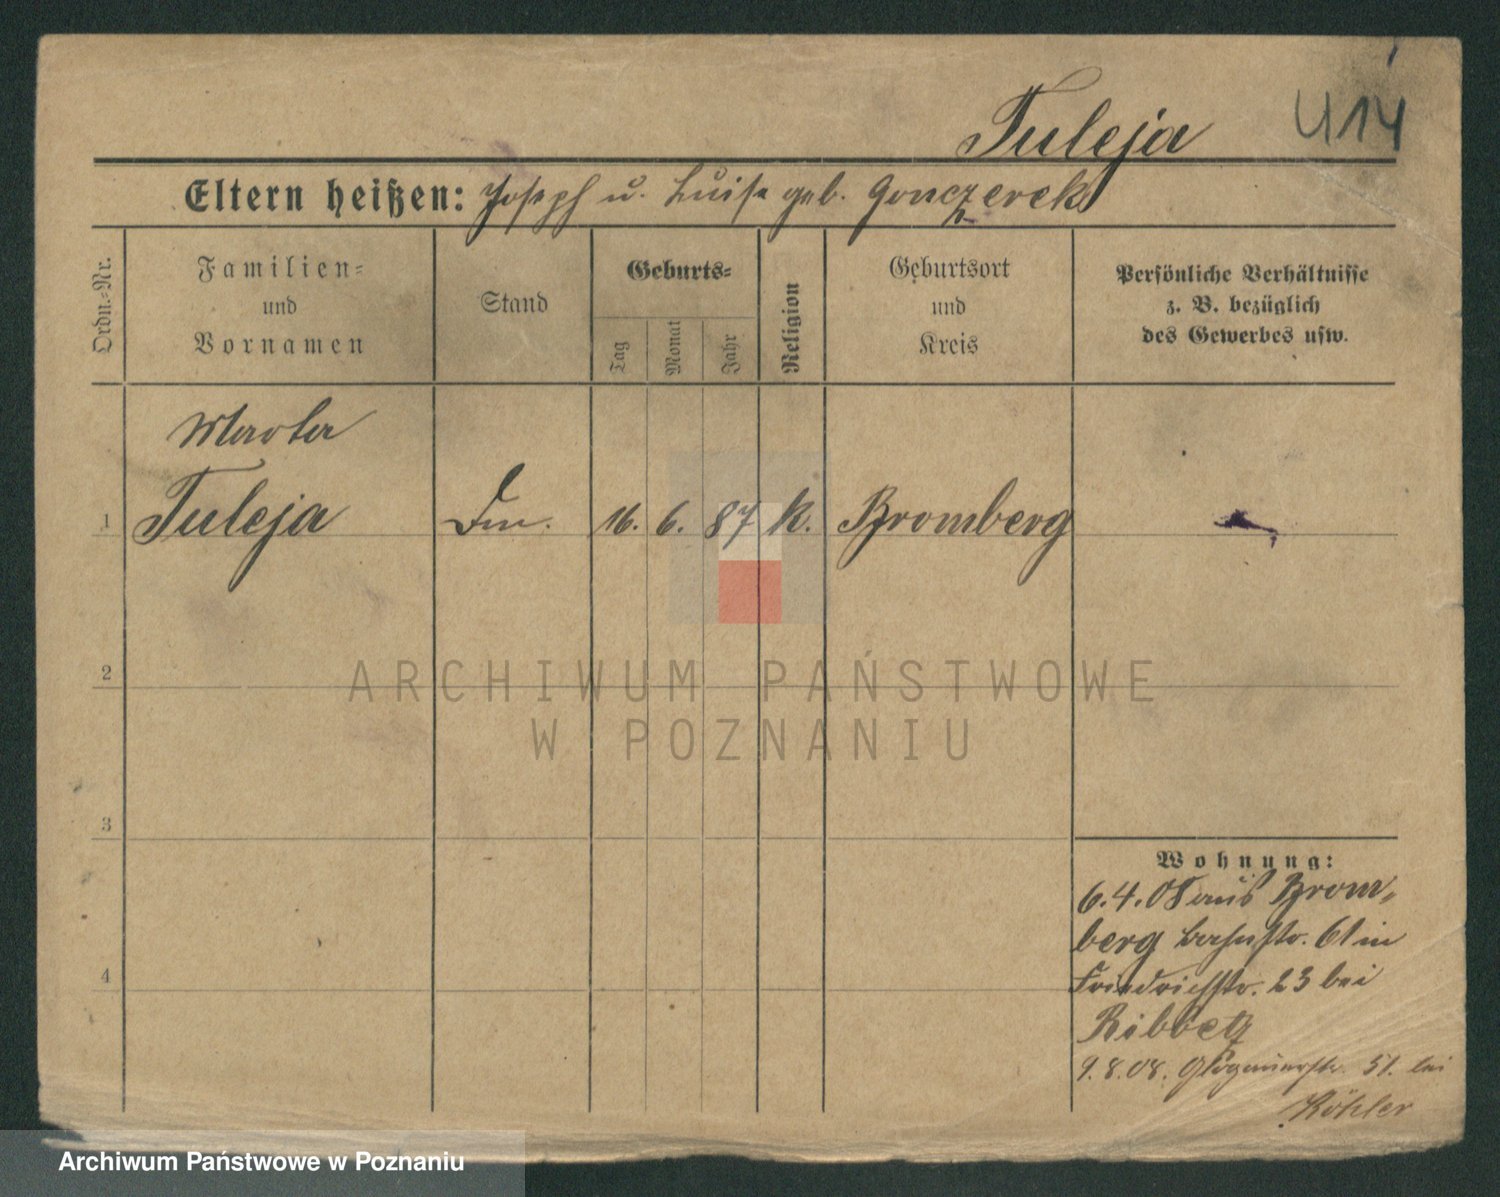 Tuleja
U14
Eltern heißen: Joseph u. Luise geb. Gonczerek
Ordn.-Nr.
Familien-
und
Vornamen
Stand
Geburts-
Tag
Monat
Jahr
Religion
Geburtsort
und
Kreis
Persönliche Verhältnisse
z. B. bezüglich
des Gewerbes usw.
1
Tuleja
16. 6. 87 k. Bromberg
2
ARCHIWUM PAŃSTWOWE
W POZNANIU
3
4
Wohnung:
6.4.08 aus Brom-
berg Bahnstr. 61 in
Friedrichstr. 23 bei
9.8.08. Glogauerstr. 51. bei
Köhler
Archiwum Państwowe w Poznaniu